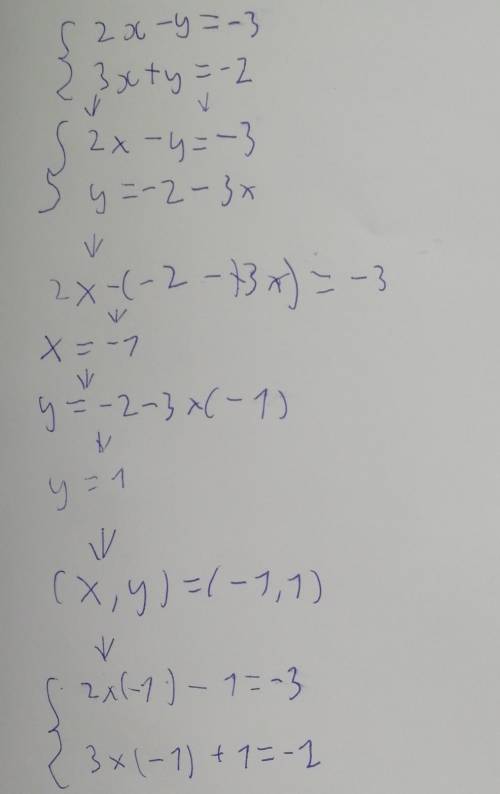 { 2x - y = -3
3x + y = -2
↓ ↓
{ 2x - y = -3
y = -2 - 3x
↓
2x - (-2 - 3x) = -3
↓
x = -1
↓
y = -2 - 3 × (-1)
↓
y = 1
⇓
(x, y) = (-1, 1)
↓
{ 2 × (-1) - 1 = -3
3 × (-1) + 1 = -2